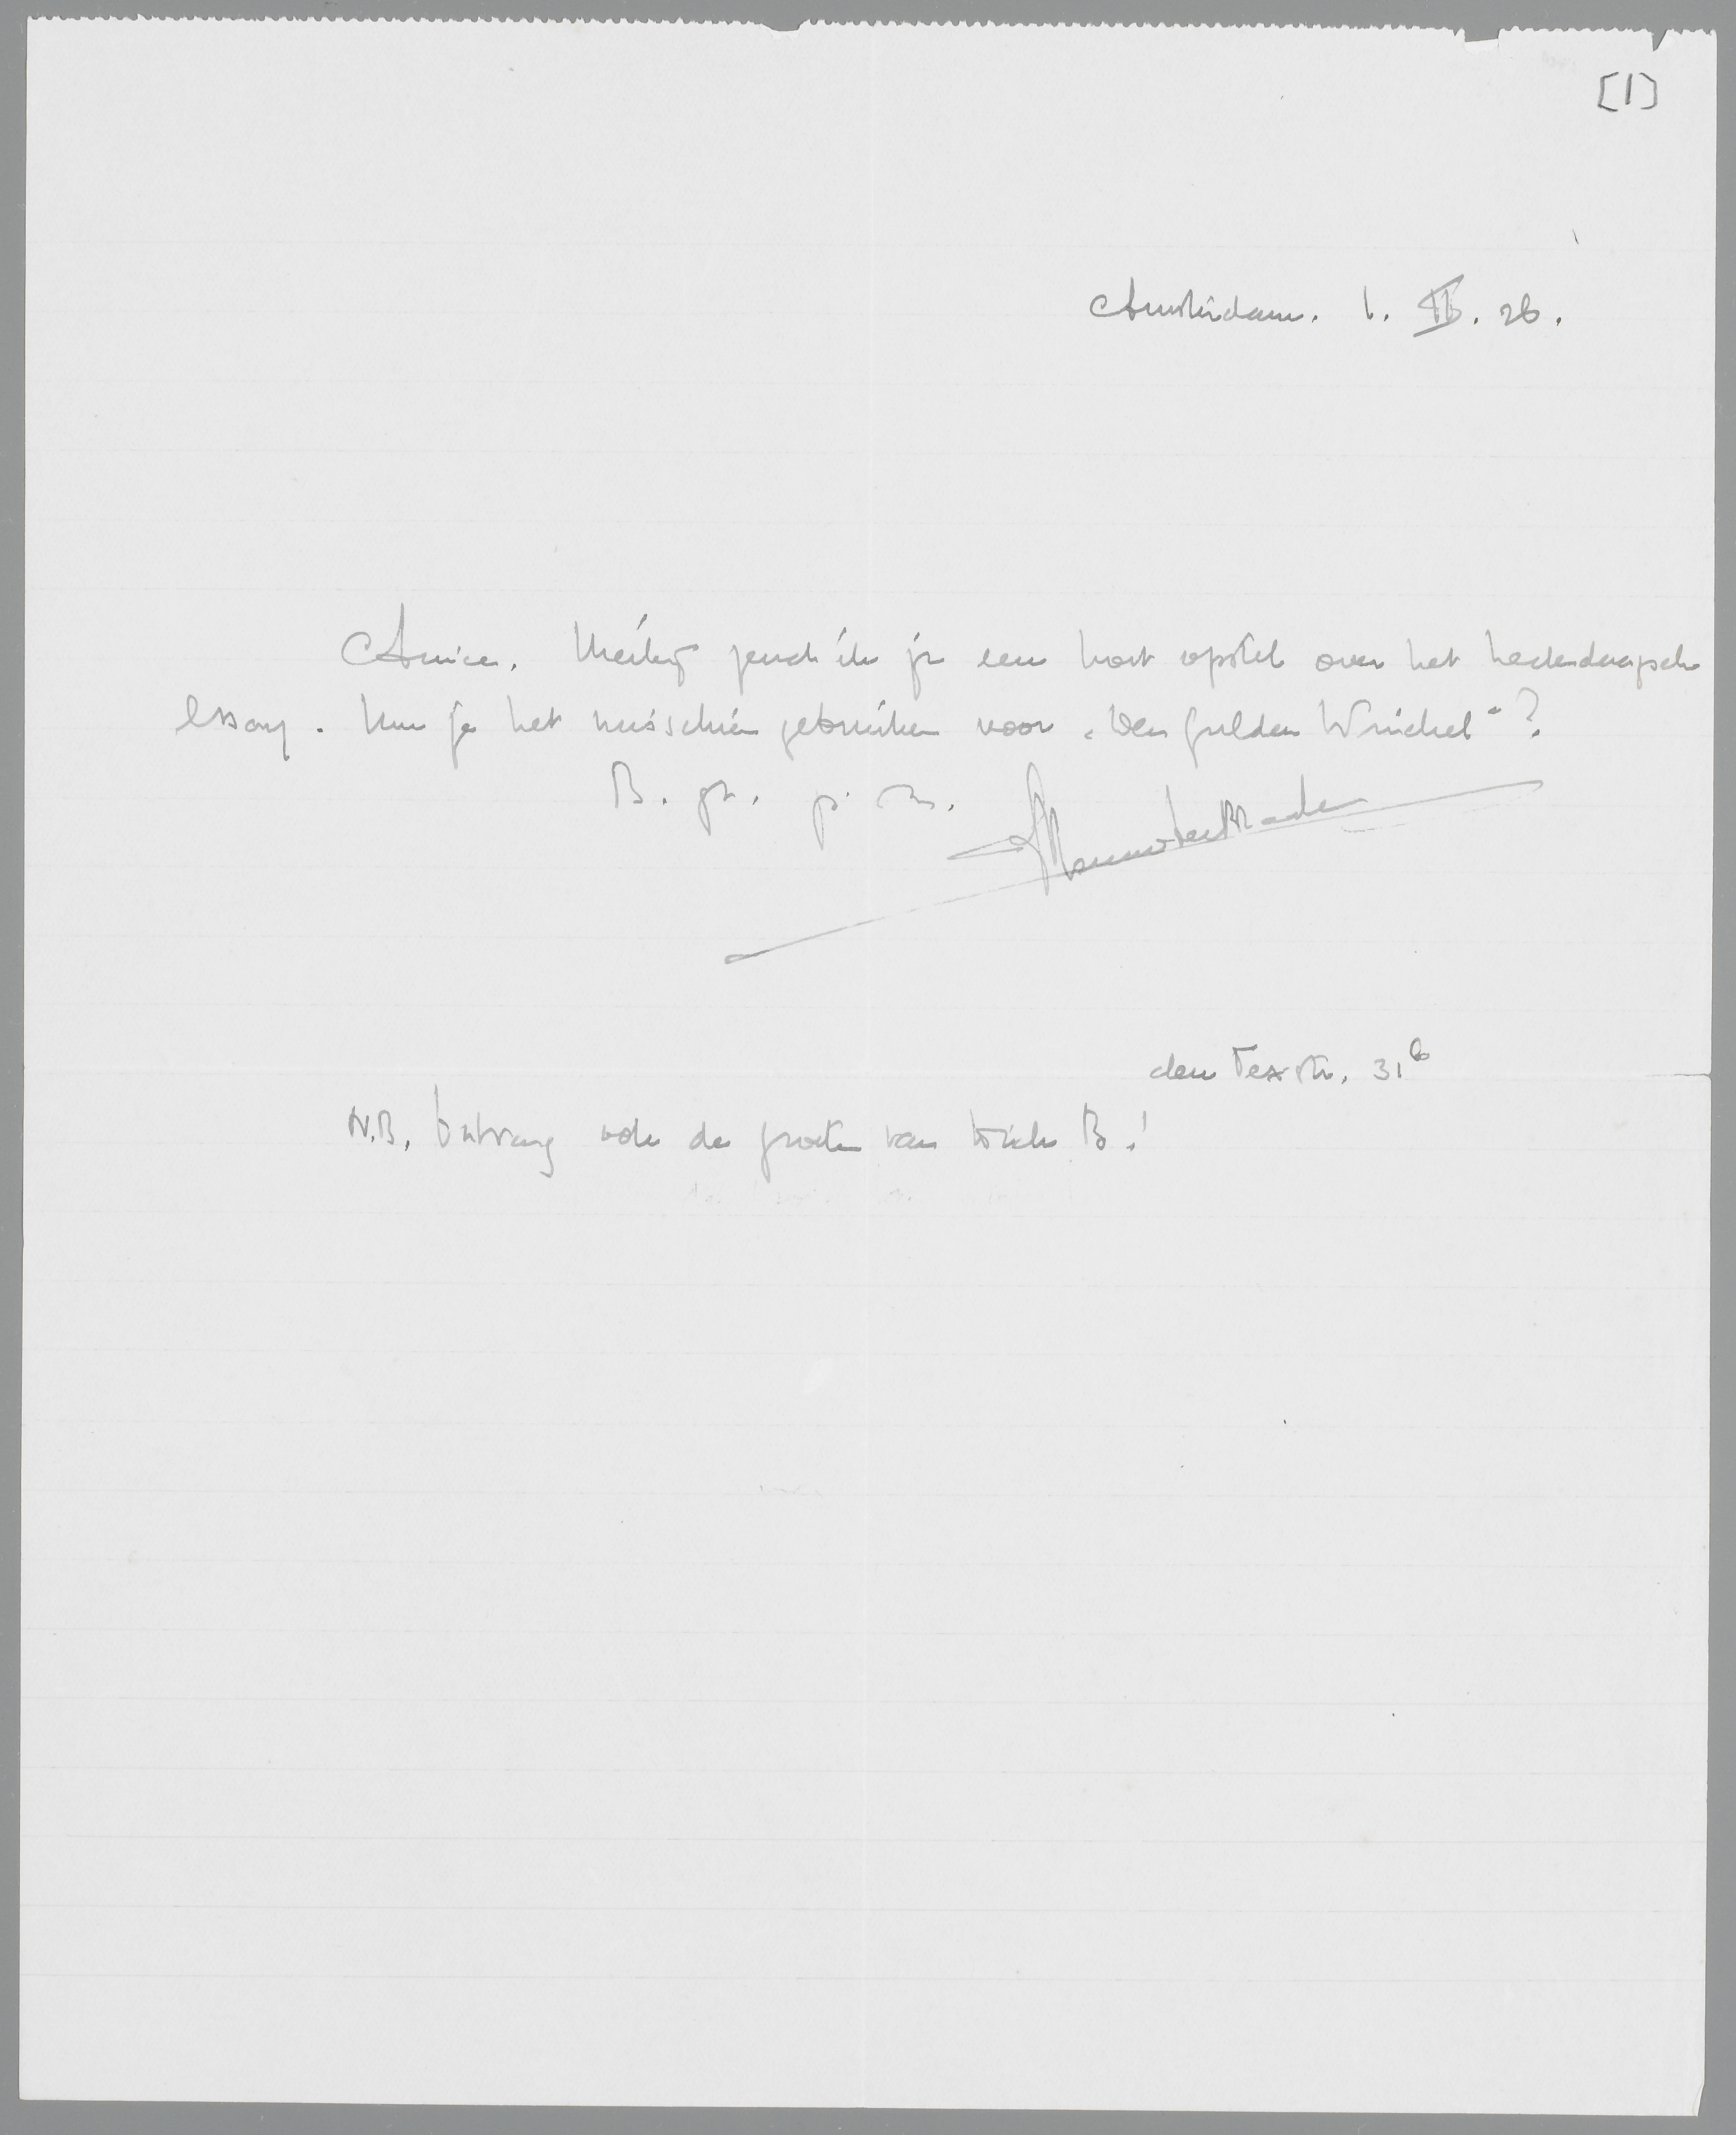 [1]
Amsterdam. 1. II. 26.
Amice. Hierbij zend ik je een kort opstel over het hedendaagsche
essay. Kun je het misschien gebruiken voor „Den Gulden Winckel"?
B. gr. p. m.
Menno ter Braak
den Texstr. 31b
N.B. Ontvang ook de groeten van B.!